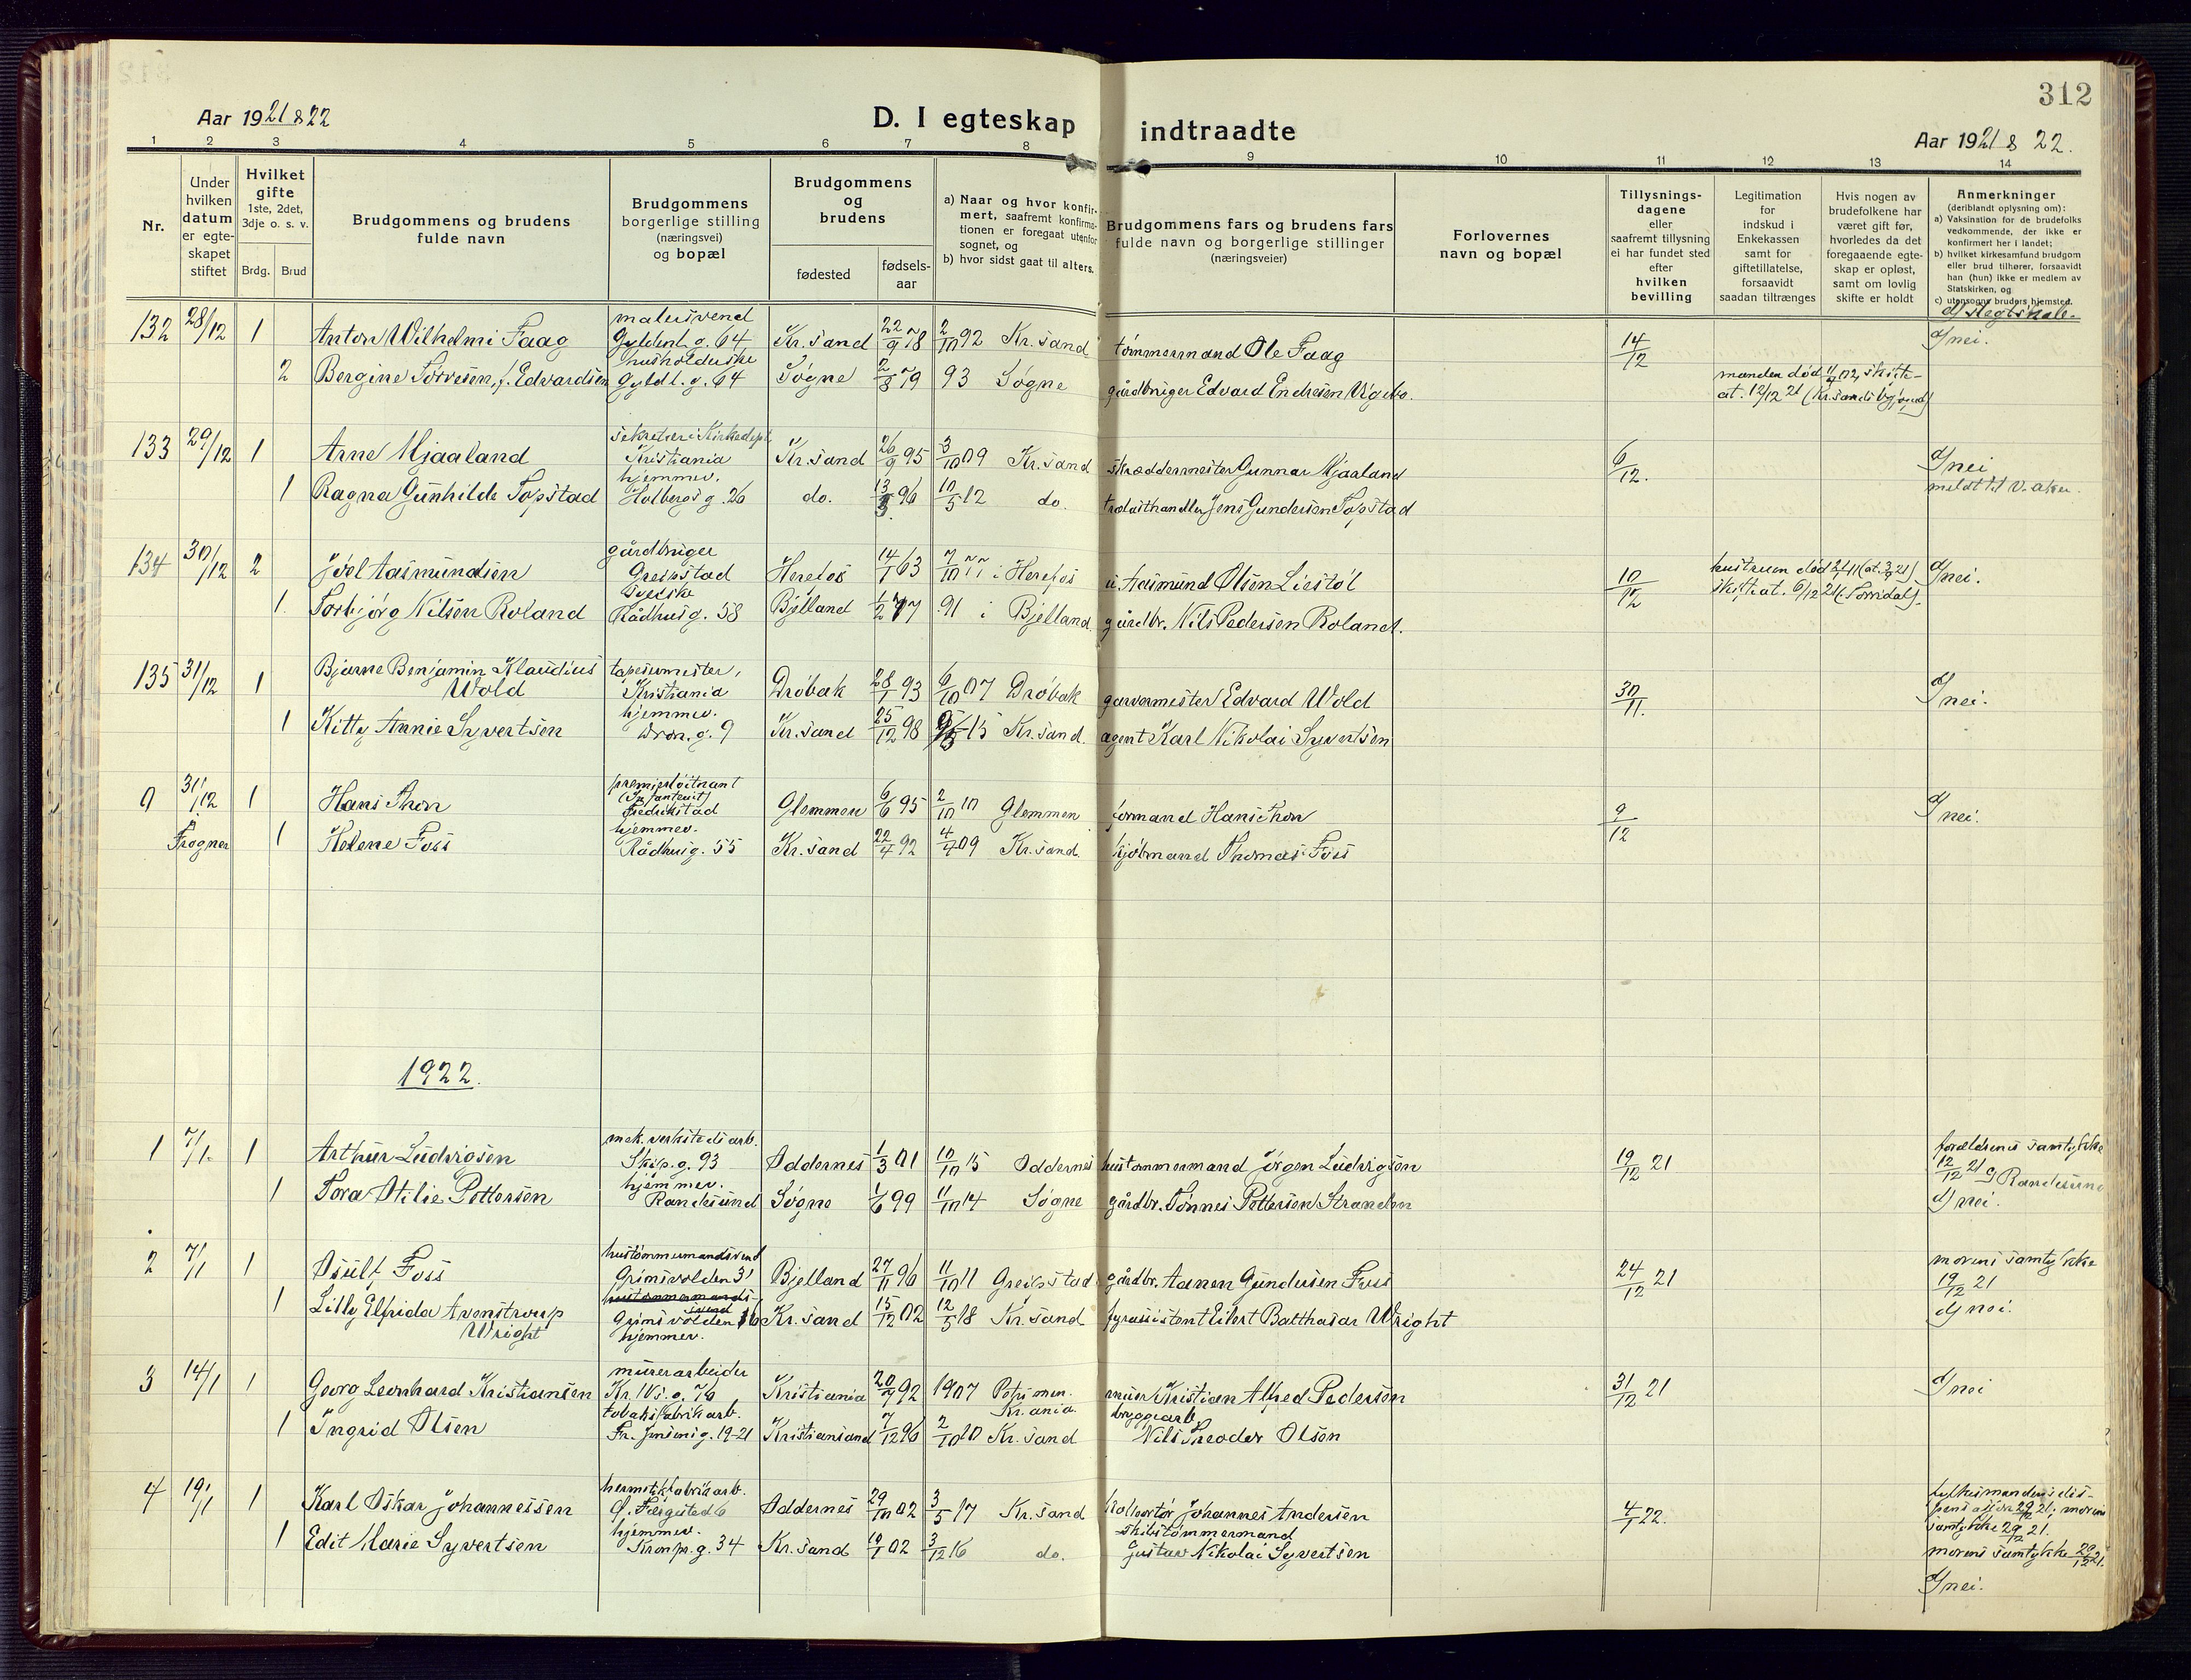 312
Aar 1921 & 22
D. I egteskap indtraadte
Aar 1921 & 22.
1 2 3 4 5 6 7 8 9 10 11 12 13 14
Nr.
Under hvilken datum er egteskapet stiftet
Hvilket gifte
1ste, 2det, 3dje o. s. v.
Brdg. Brud
Brudgommens og brudens
fulde navn
Brudgommens
borgerlige stilling
(næringsvei)
og bopæl
Brudgommens
og
brudens
fødested
fødsels-
aar
a) Naar og hvor konfir-
mert, saafremt konfirma-
tionen er foregaat utenfor
sognet, og
b) hvor sidst gaat til alters.
Brudgommens fars og brudens fars
fulde navn og borgerlige stillinger
(næringsveier)
Forlovernes
navn og bopæl
Tillysnings-
dagene
eller
saafremt tillysning
ei har fundet sted
efter
hvilken
bevilling
Legitimation
for
indskud i
Enkekassen
samt for
giftetillatelse,
forsaavidt
saadan tiltrænges
Hvis nogen av
brudefolkene har
været gift før,
hvorledes da det
foregaaende egte-
skap er opløst,
samt om lovlig
skifte er holdt
Anmerkninger
(deriblandt oplysning om):
a) Vaksination for de brudefolks
vedkommende, der ikke er
konfirmert her i landet;
b) hvilket kirkesamfund brudgom
eller brud tilhører, forsaavidt
han (hun) ikke er medlem av
Statskirken, og
c) utensogns bruders hjemsted.
132 28/12 1 Anton Wilhelmi Faag malersvend Gyldenl. g. 64 Kr.sand 22/9 78 2/10 92 Kr.sand tømmermand Ole Faag 14/12 d) nei.
2 Bergine Torvesen, f. Edvardsen husholderske Gyldl. g. 64 Søgne 2/8 79 93 Søgne gårdbruger Edvard Endresen
manden død 02, skifte-
at. 12/12 21
133 29/12 1 Arne Mjaaland sekretær i Kirkedept. Kristiania Kr.sand 26/9 95 3/10 09 Kr.sand skræddermester Gunnar Mjaaland 6/12. d) nei
1 Ragna Gunhilde Topstad hjemmev. Holbergs g. 26 do. 96 10/5 12 do. trælasthandler Jens Gundersen Topstad
meldt til V. aker.
134 30/12 2 Joel Aasmundsen gårdbruger Greipstad Herefos 14/1 63 7/10 77 i Herefos Aasmund Olsen Liestøl 10/12
hustruen død
skifteat. 6/12 21 (Torridal).
d) nei.
1. Torbjørg Nilsen Roland Rådhusg. 58 Bjelland 1/2 77 91 i Bjelland gårdbr. Nils Pedersen Roland.
135 31/12 1 Bjarne Benjamin Klaudius
Wold tapesermester, Kristiania Drøbak 28/1 93 6/10 07 Drøbak garvermester Edvard Wold 30/11. d) nei.
1 Kitty Annie Syvertsen hjemmev. Dron. g. 9 Kr.sand 25/12 98 15 Kr.sand. agent Karl Nikolai Syvertsen
9 31/12 1 Hans Thon premierløitnant (Infanteriet) Fredrikstad Glemmen 6/6 95 2/10 10 Glemmen formand Hans Thon 9/12 d) nei.
Frogner 1 Helene Foss hjemmev. Rådhusg. 55 Kr.sand 22/4 92 4/4 09 Kr.sand. kjøbmand Thomas Foss
1922.
1 7/1. 1 Arthur Ludvigsen mek. verksteds arb. Skip. g. 93 Oddernes 1/3 01 10/10 15 Oddernes hustømmermand Jørgen Ludvigsen 19/12 21
forældrenes samtykke
12/12 21 c) Randesund
d) nei.
1 Tora Otilie Pettersen hjemmev. Randesund Søgne 1/6 99 11/10 14 Søgne gårdbr. Tønnes Pettersen Stranden
2 7/1 1 Osult Foss hustømmermandsvend Grimsvolden 31 Bjelland 27/11 96 11/10 11 Greipstad gårdbr. Aanen Gundersen Foss 24/12 21
morens samtykke
19/12 21
d) nei.
1 Lilly Elfrida Avenstroup
Wright hustømmermands-
svend Grimsvolden 16 hjemmev. Kr.sand 15/12 02 12/5 18 Kr.sand fyrassistent Eilert Balthasar Wright
3 14/1 1 Georg Leonhard Kristiansen murerarbeider Kr. IVs. g. 76 Kristiania 20/9 92 1907 Petri men. Kr.ania. murer Kristian Alfred Pedersen 31/12 21 d) nei
1 Ingrid Olsen tobaksfabrikarb. Fr. Jensens g. 19-21 Kristiansand 7/12 96 2/10 10 Kr.sand bryggearb. Nils Theodor Olsen
4 19/1 1 Karl Oskar Johannessen hermetikfabrikarb. Oddernes 29/10 02 3/5 17 Kr.sand kolportør Johannes Andersen 4/1 22.
fylkesmandens dis-
pens. 29/12 21; morens
samtykke 29/12 21.
1 Edit Marie Syvertsen hjemmev. Kronpr. g. 34 Kr.sand 10/1 02 3/12 16 do. skibstømmermand Gustav Nikolai Syvertsen
morens samtykke 29/12 21.
d) nei.